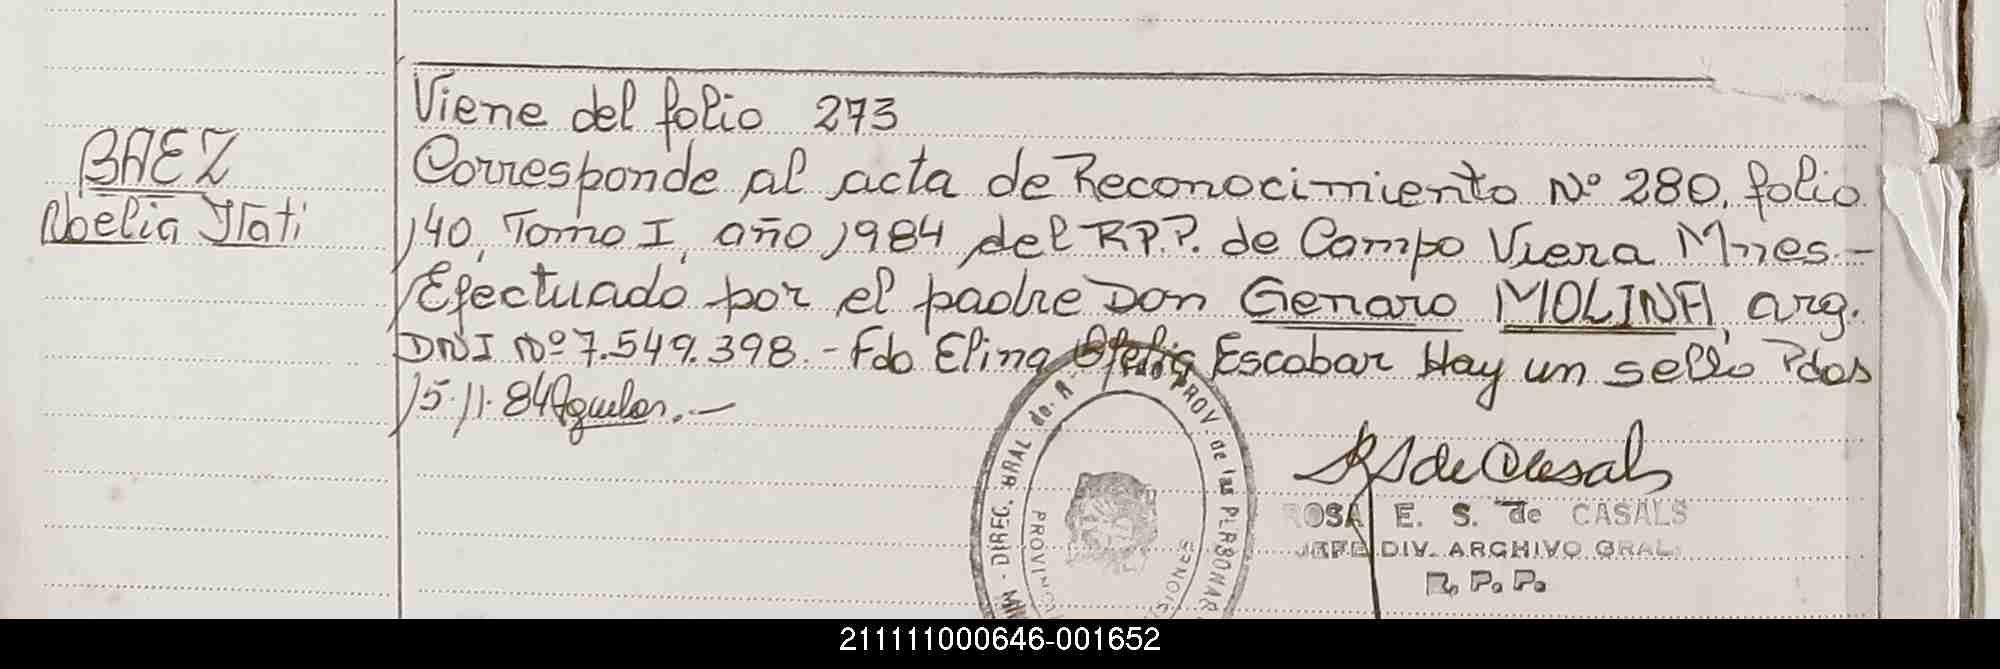 Viene del folio 273
BAEZ
Noelia Itati
Corresponde al acta de Reconocimiento Nº 280, folio
140, Tomo I, año 1984 del R.P.P. de Campo Viera Mnes.-
Efectuado por el padre Don Genaro MOLINA, arg.
DNI Nº 7.549.398.- Fdo Elina Ofelia Escobar Hay un sello Pdas
15.11.84 Aguilar.-
RS de Casals
ROSA E. S. de CASALS
JEFE DIV. ARCHIVO GRAL.
R. P. P.
DIREC. GRAL de. R PROV. de las PERSONAS
PROVINC SIONES
211111000646-001652